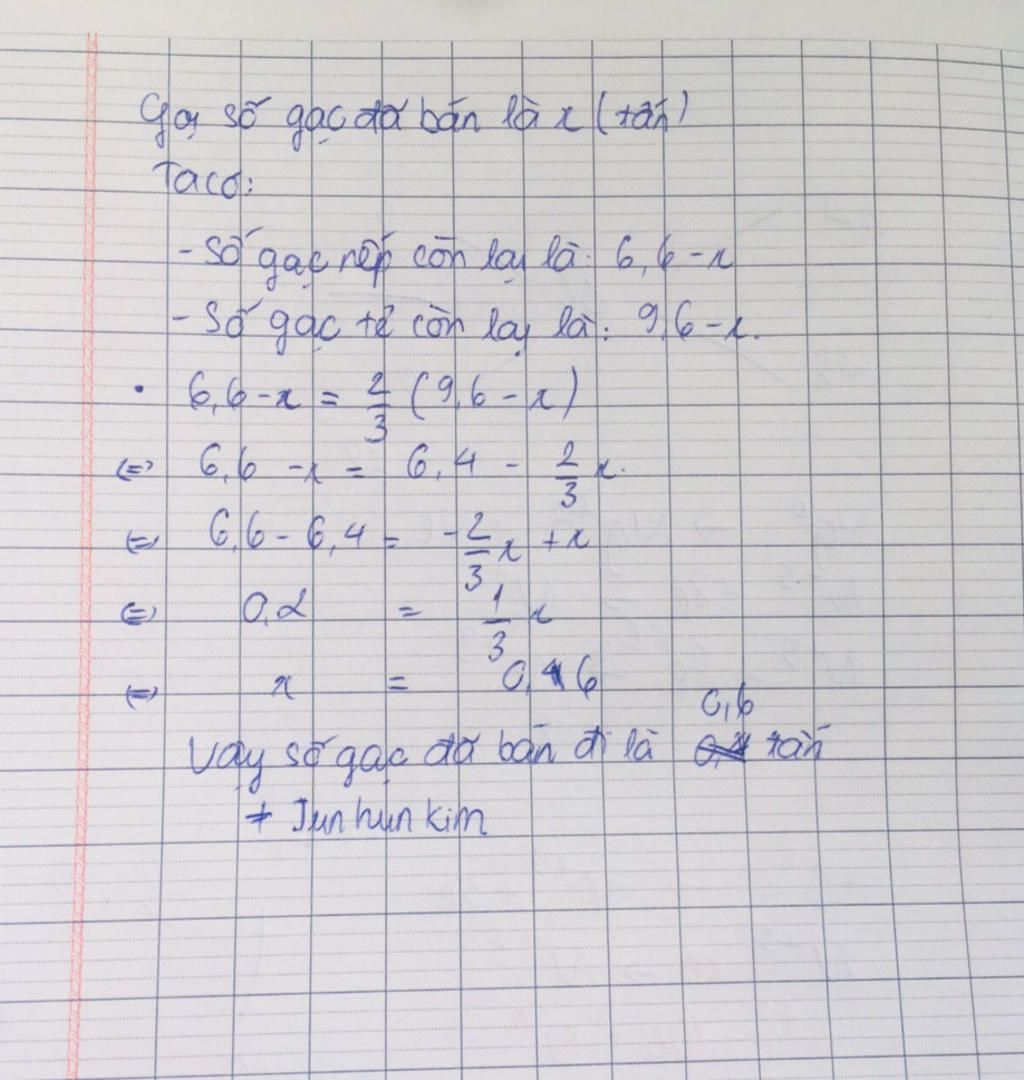 Gọi số gạo đã bán là x (tấn)
Ta có:
- Số gạo nếp còn lại là: 6,6 - x
- Số gạo tẻ còn lại là: 9,6 - x.
• 6,6 - x = 2/3 (9,6 - x)
⇔ 6,6 - x = 6,4 - 2/3 x.
⇔ 6,6 - 6,4 = -2/3 x + x
⇔ 0,2 = 1/3 x
⇔ x = 0,6
Vậy số gạo đã bán đi là 0,6 tấn
+ Junhunkim